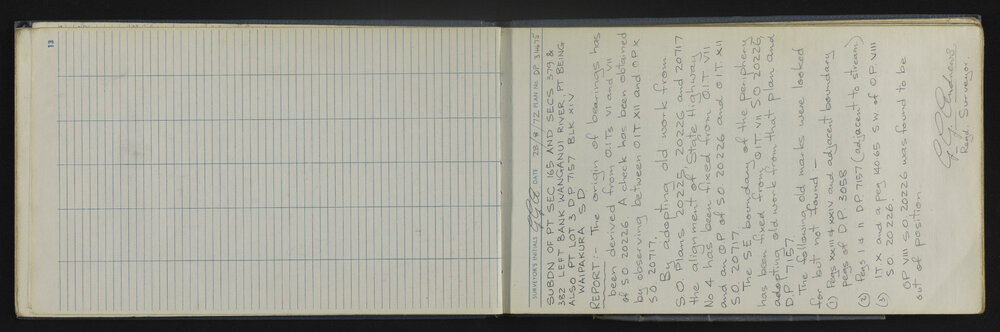 13
SURVEYOR'S INITIALS GGA DATE 28/8/72 PLAN No. DP 34675
SUBDN OF PT SEC 165 AND SECS 379 &
382 LEFT BANK WANGANUI RIVER, PT BEING
ALSO PT LOT 3 DP 7157 BLK XIV
WAIPAKURA SD
REPORT:- The origin of bearings has
been derived from OITs VI and VII
of SO 20226 A check has been obtained
by observing between OIT XII and OP X
SO 20717.
By adopting old work from
S.O. Plans 20225, 20226 and 20717
the alignment of State Highway
No 4 has been fixed from OIT VII
and an OP of SO 20226 and OIT XII
SO 20717.
The SE boundary of the periphery
has been fixed from OIT VII SO 20226,
adopting old work from that plan and
DP 7157.
The following old marks were looked
for but not found -
(1) Pegs XXIII & XXIV and adjacent boundary
pegs of DP 3058
(2) Pegs 1 & 11 DP 7157 (adjacent to stream)
(3) ITX and a peg 140.65 S.W. of OP VIII
SO 20226.
OP VIII SO 20226 was found to be
out of position
G G Andrews
Regd. Surveyor.